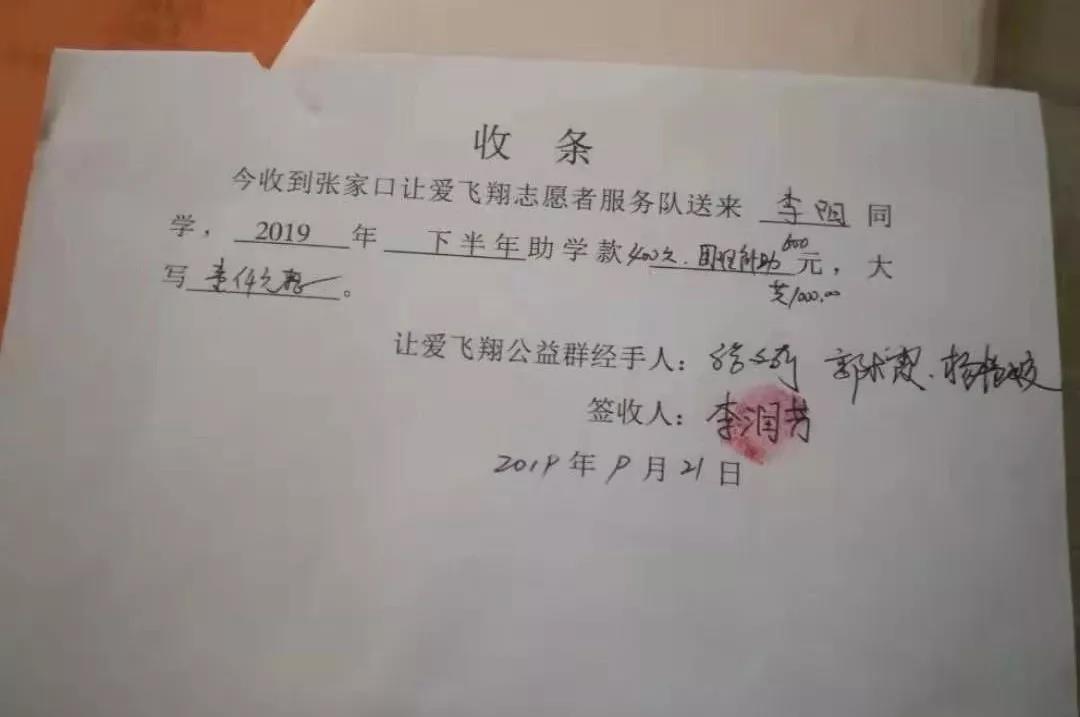 收 条
今收到张家口让爱飞翔志愿者服务队送来 李阳 同
学，2019 年 下半年助学款 400元. 困程补助 600 元，大
共1000.00
写 壹仟元整 。
让爱飞翔公益群经手人： 郭 杨
签收人：李润芳
2019年9月21日